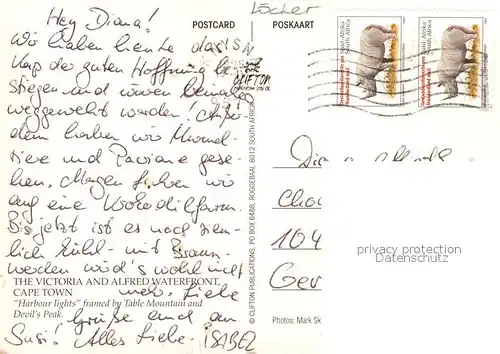 Hey Diana!
Wir haben heute das
Kap der guten Hoffnung be-
stiegen und waren beinahe
weggeweht worden! Außer
dem haben wir Murmel-
tiere und Paviane gese-
hen. Morgen fahren wir
auf eine Krokodilfarm.
Bis jetzt ist es noch ziem-
lich kühl - mit Braun-
werden wird's wohl nicht
mehr. Liebe
Grüße und an
Susi! Alles Liebe. ISABEL
THE VICTORIA AND ALFRED WATERFRONT,
CAPE TOWN
"Harbour lights" framed by Table Mountain and
Devil's Peak.
POSTCARD POSKAART
Löcher
CLIFTON
© CLIFTON PUBLICATIONS: PO BOX 6488, ROGGEBAAI, 8012 SOUTH AFRICA
Photos: Mark Sk
Suid-Afrika
South Africa
Suid-Afrika
South Africa
104
Ger
privacy protection